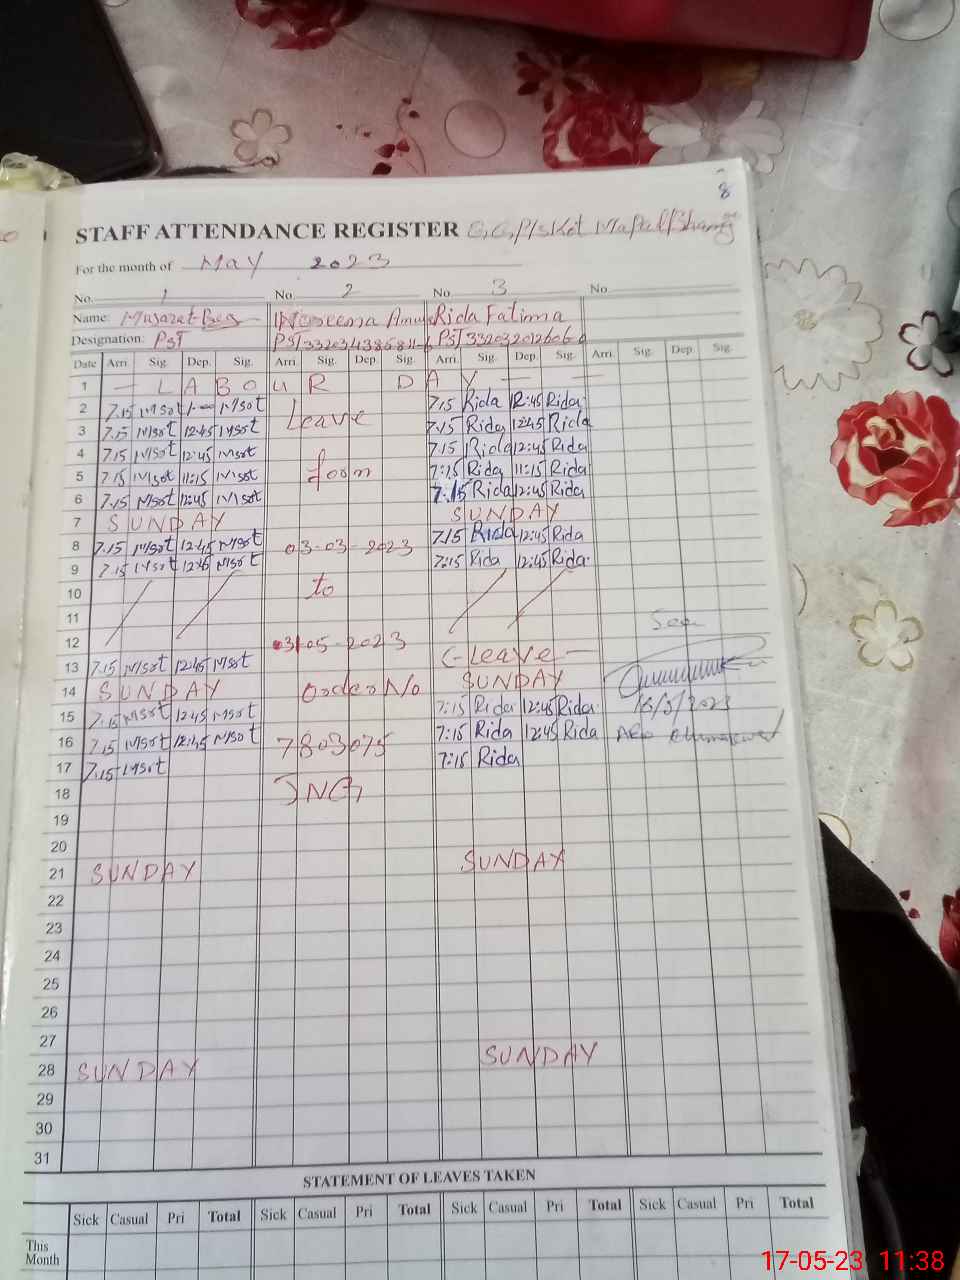 8
STAFF ATTENDANCE REGISTER G.G.P/S Kot
For the month of May 2023
No. 1 No. 2 No. 3 No.
Name: Musarat Beg Rida Fatima
Designation: PST PST PST
Date Arri. Sig. Dep. Sig. Arri. Sig. Dep. Sig. Arri. Sig. Dep. Sig. Arri. Sig. Dep. Sig.
1 — L A B O U R D A Y —
2 7.15 Msrt Msrt Leave 7.15 Rida 12:45 Rida
3 7.15 Msrt 12:45 Msrt 7.15 Rida 12:45 Rida
4 7.15 Msrt 12:45 Msrt 7.15 Rida 12:45 Rida
5 7.15 Msrt 11:15 Msrt from 7:15 Rida 11:15 Rida
6 7.15 Msrt 12:45 Msrt 7.15 Rida 12:45 Rida
7 SUNDAY SUNDAY
8 7.15 Msrt 12:45 Msrt 03-03-2023 7.15 Rida 12:45 Rida
9 7.15 Msrt 12:45 Msrt 7:15 Rida 12:45 Rida
10 to
11
12 03-05-2023 See
13 7.15 Msrt 12:45 Msrt C-Leave —
14 SUNDAY order No SUNDAY
15 7.15 Msrt 12:45 Msrt 7:15 Rida 12:45 Rida 16/5/2023
16 7.15 Msrt 12:45 Msrt 7803075 7:15 Rida 12:45 Rida
17 7.15 Msrt 7:15 Rida
18 JNG
19
20
21 SUNDAY SUNDAY
22
23
24
25
26
27
28 SUNDAY SUNDAY
29
30
31
STATEMENT OF LEAVES TAKEN
Sick Casual Pri Total Sick Casual Pri Total Sick Casual Pri Total Sick Casual Pri Total
This
Month
17-05-23 11:38